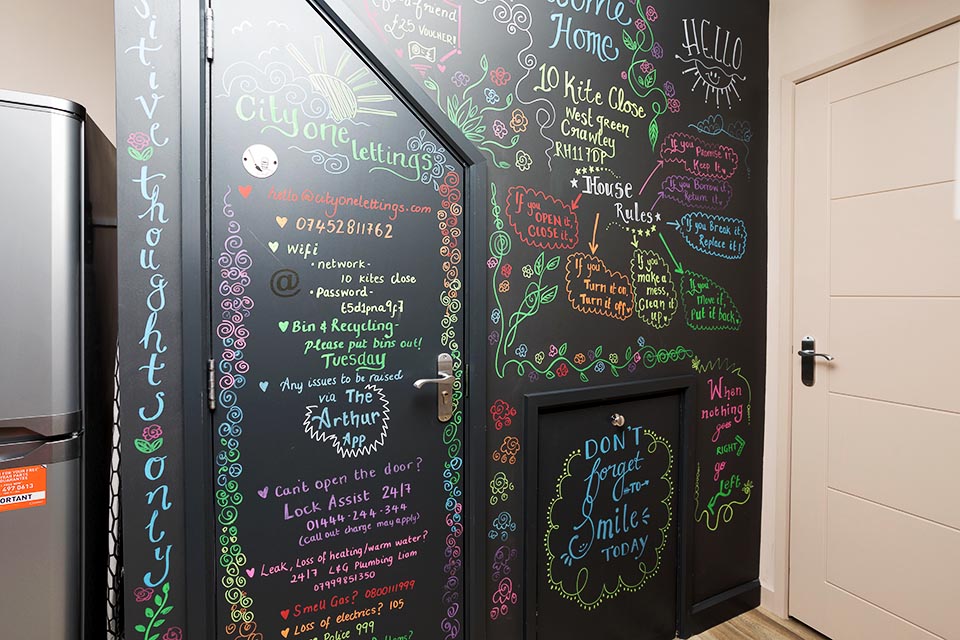 sitive thoughts only
a friend
£25 VOUCHER!
City one
lettings
hello@cityonelettings.com
07452811762
Wifi
• network-
10 kites close
• Password-
t5d1pna9f7
Bin & Recycling-
please put bins out!
Tuesday
Any issues to be raised
via The
Arthur
App
Can't open the door?
Lock Assist 24/7
01444-244-344
(call out charge may apply)
Leak, Loss of heating/warm water?
24/7 L&G Plumbing Liam
07999851350
Smell Gas? 0800111999
Loss of electrics? 105
Police 999
come
Home
10 Kite Close
West green
Crawley
RH117DP
HELLO
House
Rules
If you Promise it,
Keep it.
If you Borrow it,
Return it,
If you Break it,
Replace it!
If you OPEN it,
CLOSE it.
If you
Turn it on,
Turn it off.
If you
make a
mess,
Clean it
up.
If you
Move it,
Put it back
When
nothing
goes
RIGHT
go
left
DON'T
forget
TO
Smile
TODAY
FOR YOUR FREE
YEAR PARTS
GUARANTEE
697 0613
ORTANT